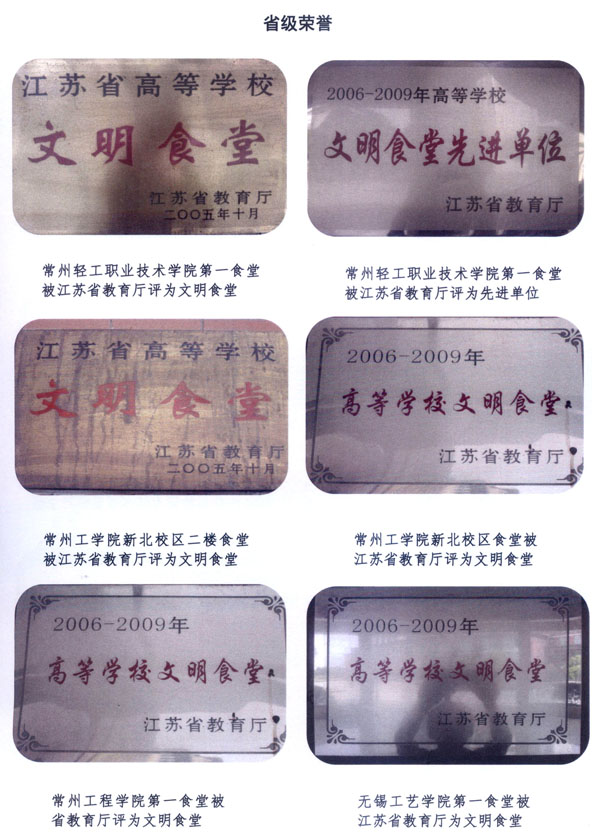 省级荣誉
江苏省高等学校
文明食堂
江苏省教育厅
二〇〇五年十月
常州轻工职业技术学院第一食堂
被江苏省教育厅评为文明食堂
2006-2009年高等学校
文明食堂先进单位
江苏省教育厅
常州轻工职业技术学院第一食堂
被江苏省教育厅评为先进单位
江苏省高等学校
文明食堂
江苏省教育厅
二〇〇五年十月
常州工学院新北校区二楼食堂
被江苏省教育厅评为文明食堂
2006-2009年
高等学校文明食堂
江苏省教育厅
常州工学院新北校区食堂被
江苏省教育厅评为文明食堂
2006-2009年
高等学校文明食堂
江苏省教育厅
常州工程学院第一食堂被
省教育厅评为文明食堂
2006-2009年
高等学校文明食堂
江苏省教育厅
无锡工艺学院第一食堂被
江苏省教育厅为文明食堂